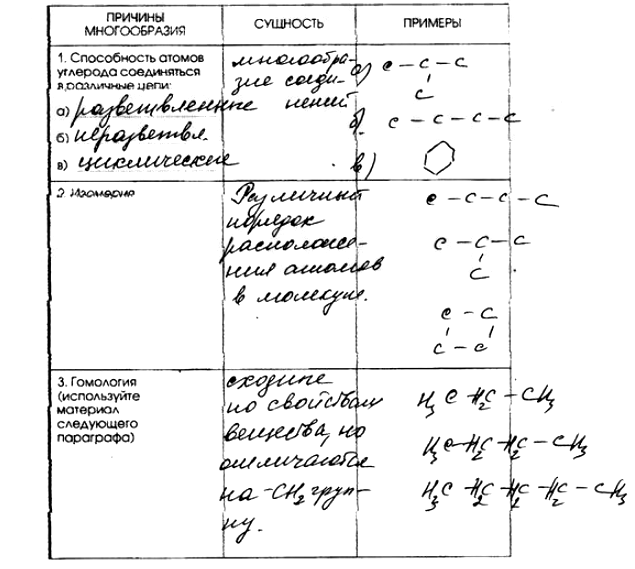 ПРИЧИНЫ МНОГООБРАЗИЯ
СУЩНОСТЬ
ПРИМЕРЫ
1. Способность атомов
углерода соединяться
в различные цепи:
а) разветвленные
б) неразветвл.
в) циклические
многообра-
зие соеди-
нений
а) C – C – C
C
б) C – C – C – C
в)
2. Изомерия
Различный
порядок
расположе-
ния атомов
в молекуле.
C – C – C – C
C – C – C
C
C – C
C – C
3. Гомология
(используйте
материал
следующего
параграфа)
сходные
по свойствам
вещества, но
отличаются
на -CH2 груп-
пу.
H3C – H2C – CH3
H3C – H2C – H2C – CH3
H3C – H2C – H2C – H2C – CH3